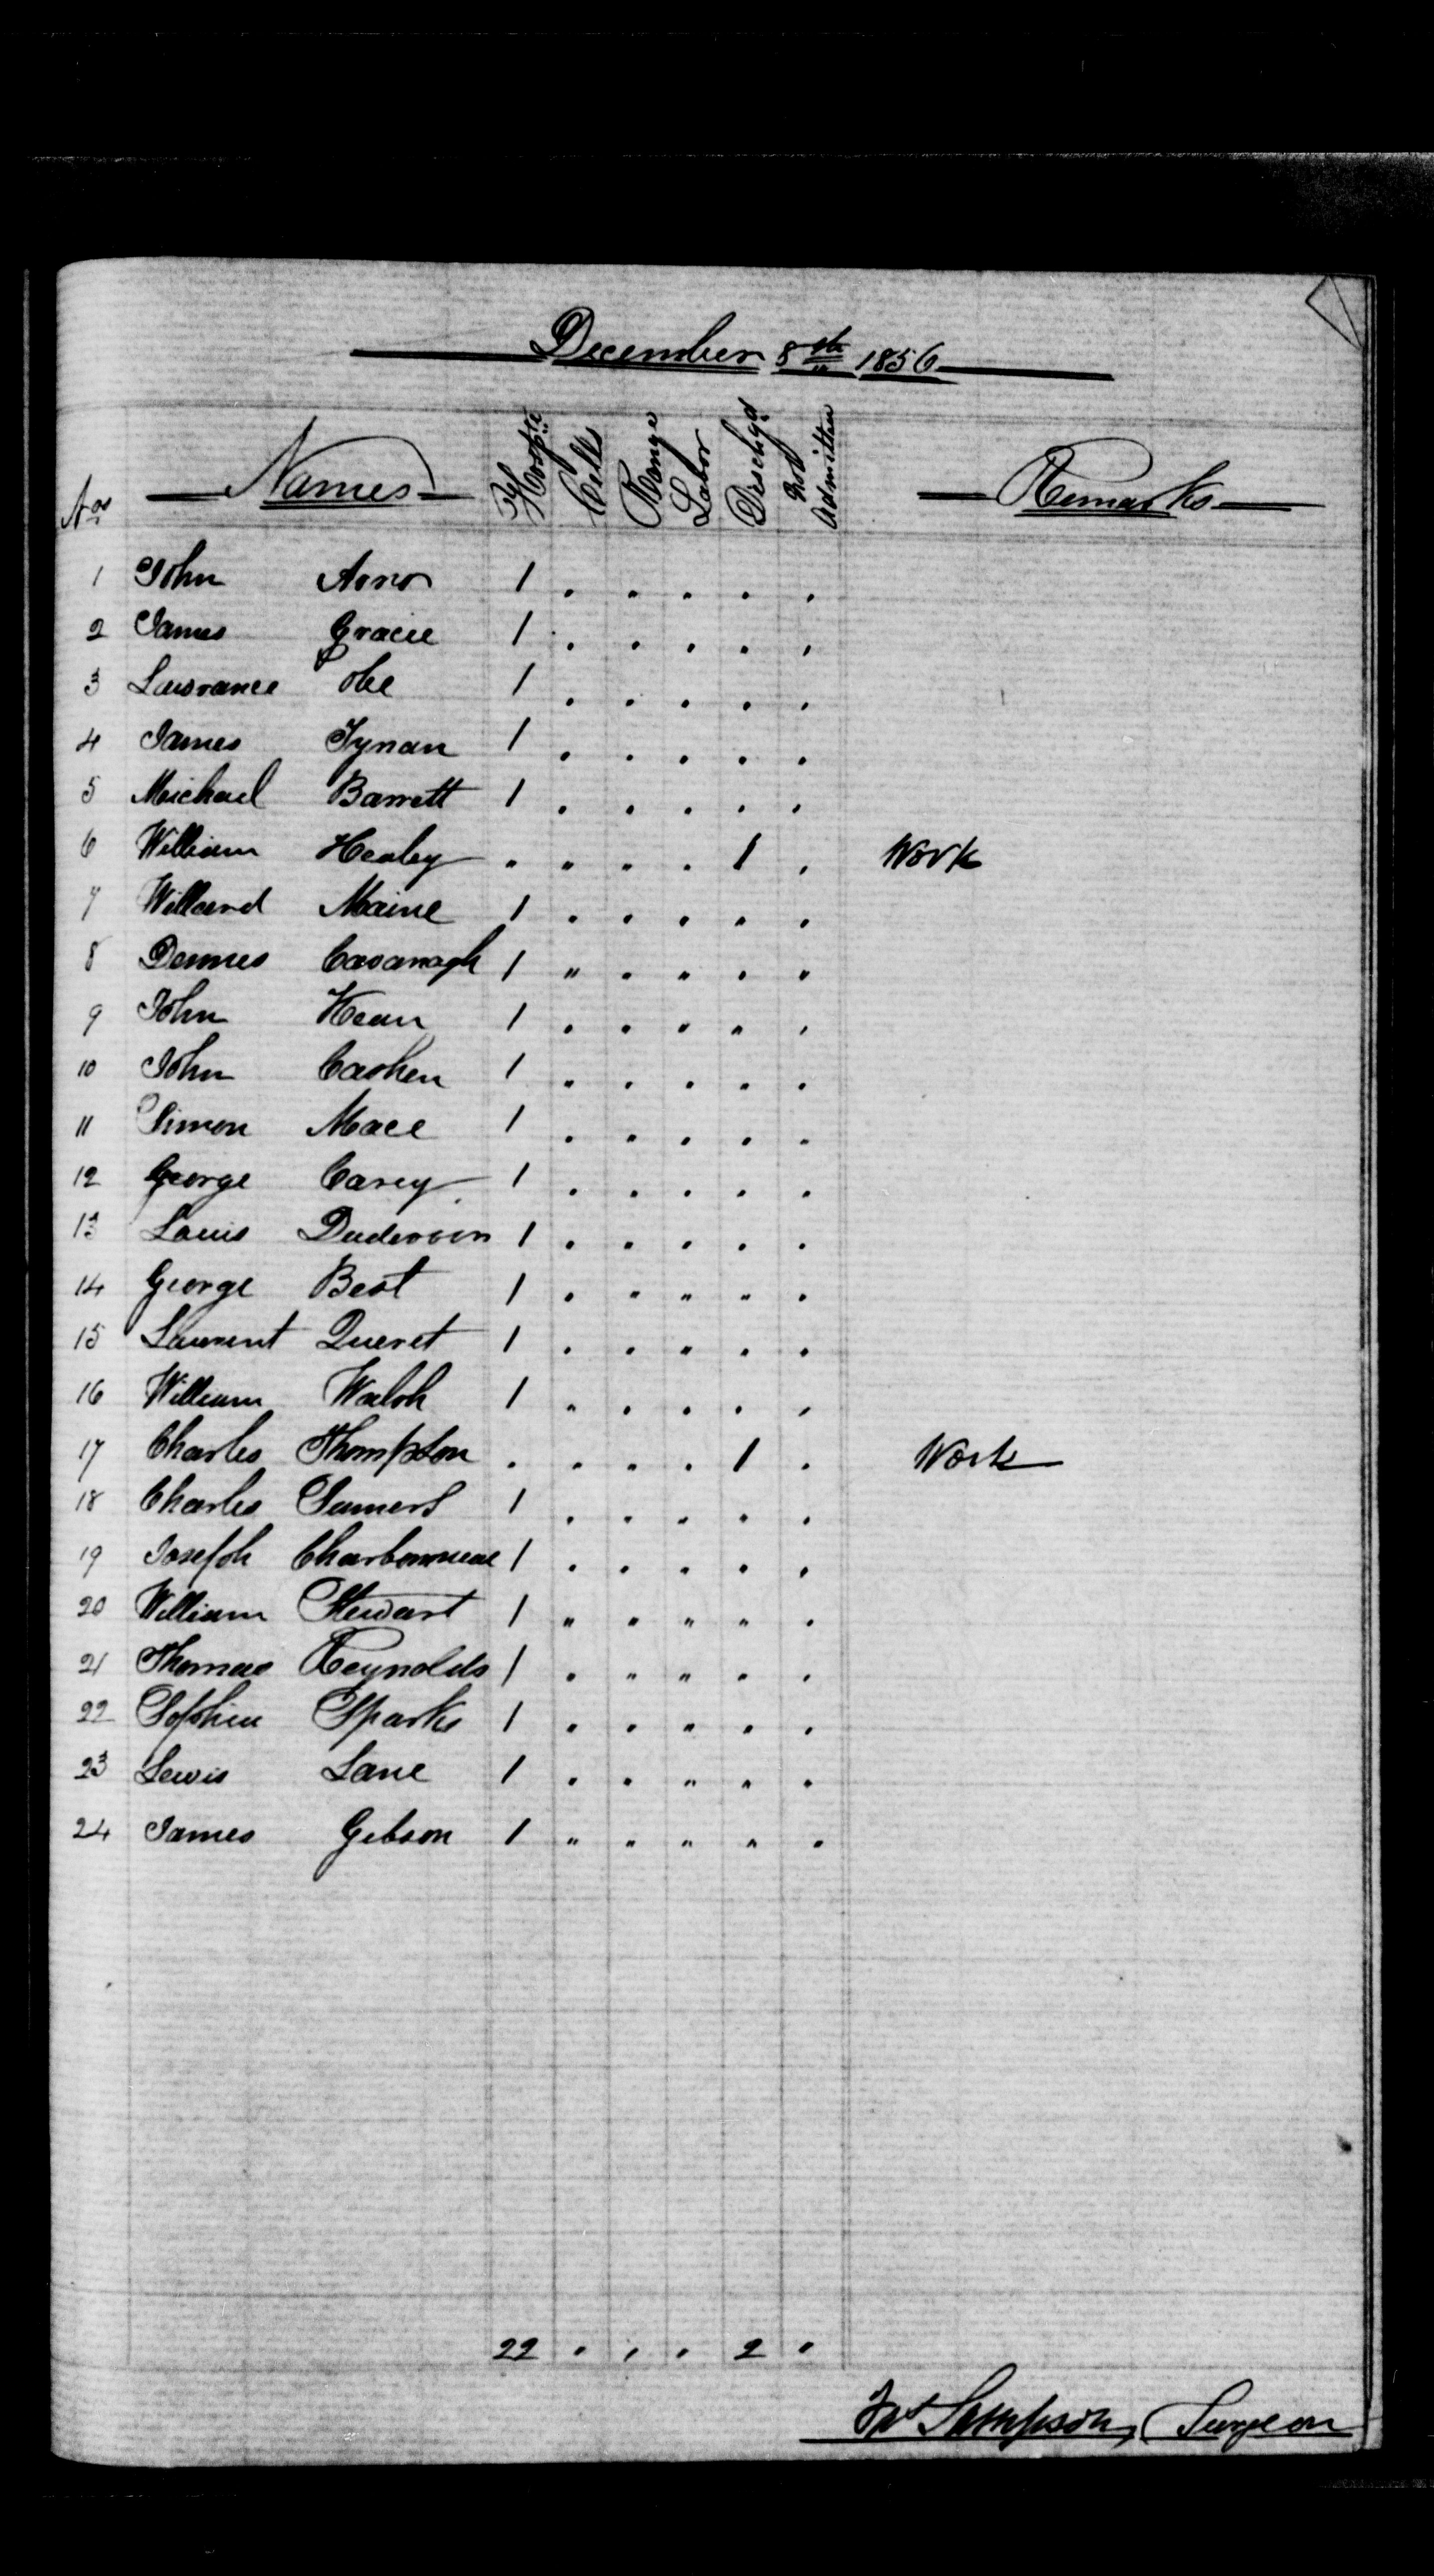 December 8th 1856
Nos Names Hospl Cells Range Labor Dischgd Not Admitted Remarks
1 John Arno 1 . " . . .
2 James Gracie 1 . . . . .
3 Lawrance 1 . . . . .
4 James Tynan 1 . . . . .
5 Michael Barrett 1 . . . . .
6 William Healey . " . . 1 . Work
7 Willard Maine 1 . . . . .
8 Dennes Cavanagh 1 " . . . "
9 John Kean 1 . . . . .
10 John Cashen 1 . . . . .
11 Simon Mace 1 . . . . .
12 George Carey 1 . . . . .
13 Louis 1 . . . . .
14 George Best 1 . " " " .
15 Laurent Queret 1 . . . . .
16 William Walsh 1 . . . . .
17 Charles Thompson . . . . 1 . Work
18 Charles Sumers 1 . . . . .
19 Joseph Charbonneau 1 . . . . .
20 William Stewart 1 " " " " .
21 Thomas Reynolds 1 . " " . .
22 Sparks 1 . . . . .
23 Lewis Lane 1 . . " . .
24 James Gibson 1 " . " . .
22 . . . 2 .
Jas Sampson, Surgeon